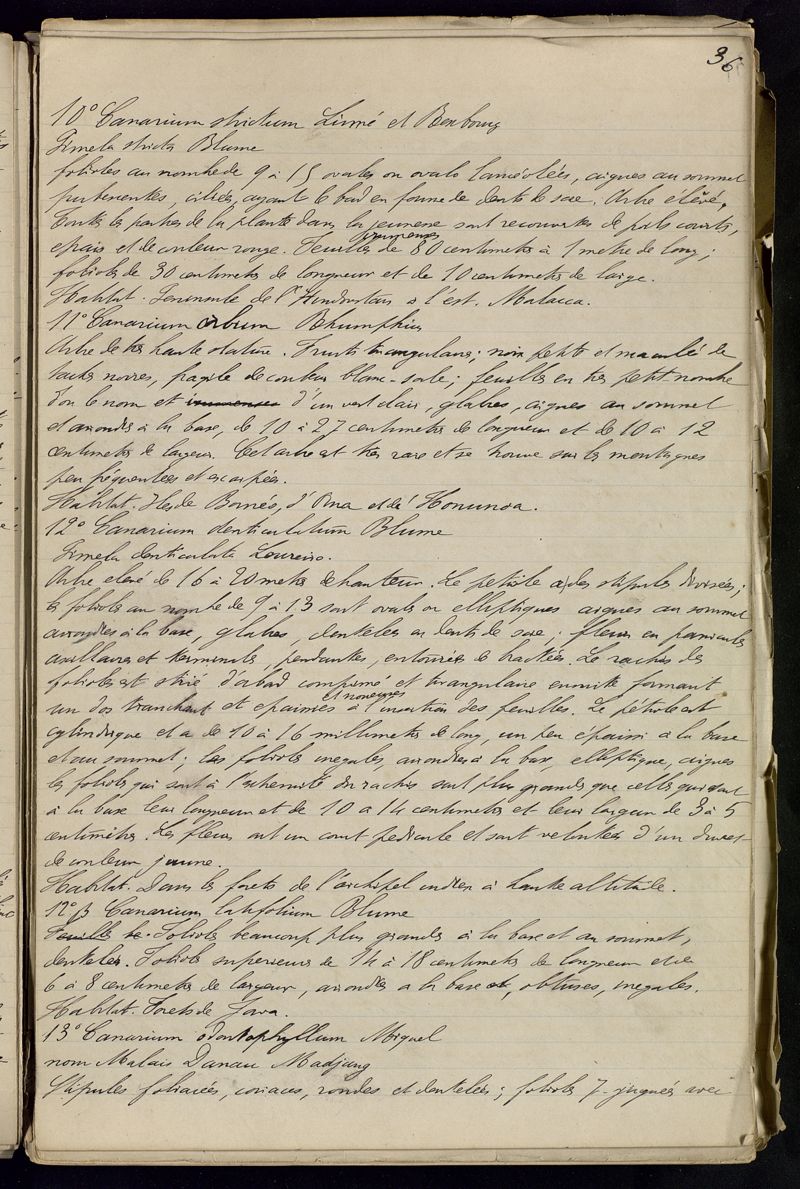 36
10° Canarium strictum Linné et Roxbourg
Pimela stricta Blume
folioles au nombre de 9 à 15 ovales ou ovalo lancéolées, aigues au sommet
pubescentes, ciliées, ayant le bord en forme de dents de scie. Arbre élevé,
Toutes les parties de la plante dans la jeunesse sont recouvertes de poils courts,
epais et de couleur rouge. Feuilles de 80 centimetres à 1 metre de long;
folioles de 30 centimetres de longueur et de 10 centimetres de large.
Habitat. Peninsule de l'Hindoustan à l'est. Malacca.
11° Canarium album Rhumphius
Arbre de très haute stature. Fruits triangulaires; noix petite et maculée de
taches noires, fragile de couleur blanc-sale; feuilles en très petit nombre
d'ou le nom et d'un vert clair, glabres, aigues au sommet
et arrondies à la base, de 10 à 27 centimetres de longueur et de 10 à 12
centimetres de largeur. Cet arbre est très rare et se trouve sur les montagnes
peu fréquentées et escarpées.
Habitat. Iles de Bornéo, d' et de Honunoa.
12° Canarium denticulatum Blume
Pimela denticulata Loureiro.
Arbre elevé de 16 à 20 metres de hauteur. Le petiole a des stipules divisées;
les folioles au nombre de 9 à 13 sont ovales ou elliptiques aigues au sommet
arrondies à la base, glabres, dentelées en dents de scie; fleurs en panicules
axillaires et terminales, pendantes, entourées de bractées. Le rachis des
folioles est strié d'abord comprimé et triangulaire ensuite formant
un dos tranchant et epaissies à l'insertion des feuilles. Le pétiole est
cylindrique et a de 10 à 16 millimetres de long, un peu epaissi à la base
et au sommet; les folioles inegales, arrondies à la base, elliptique, aigues
les folioles qui sont à l'extremité du rachis sont plus grandes que celles qui sont
à la base leur longueur et de 10 à 14 centimetres et leur largeur de 3 à 5
centimètres. Les fleurs ont un court pedicule et sont veloutées d'un duvet
de couleur jaune.
Habitat. Dans les forets de l'archipel indien à haute altitude.
12° β Canarium latifolium Blume
Feuilles Folioles beaucoup plus grandes à la base et au sommet,
dentelées. Folioles superieures de 14 à 18 centimetres de longueur et de
6 à 8 centimetres de largeur, arrondies à la base, obtuses, inegales.
Habitat. Forets de Java.
13° Canarium odontophyllum Miquel
nom Malais Danau Madjang
Stipules foliacées, coriaces, rondes et dentelées; folioles 7-juguées avec